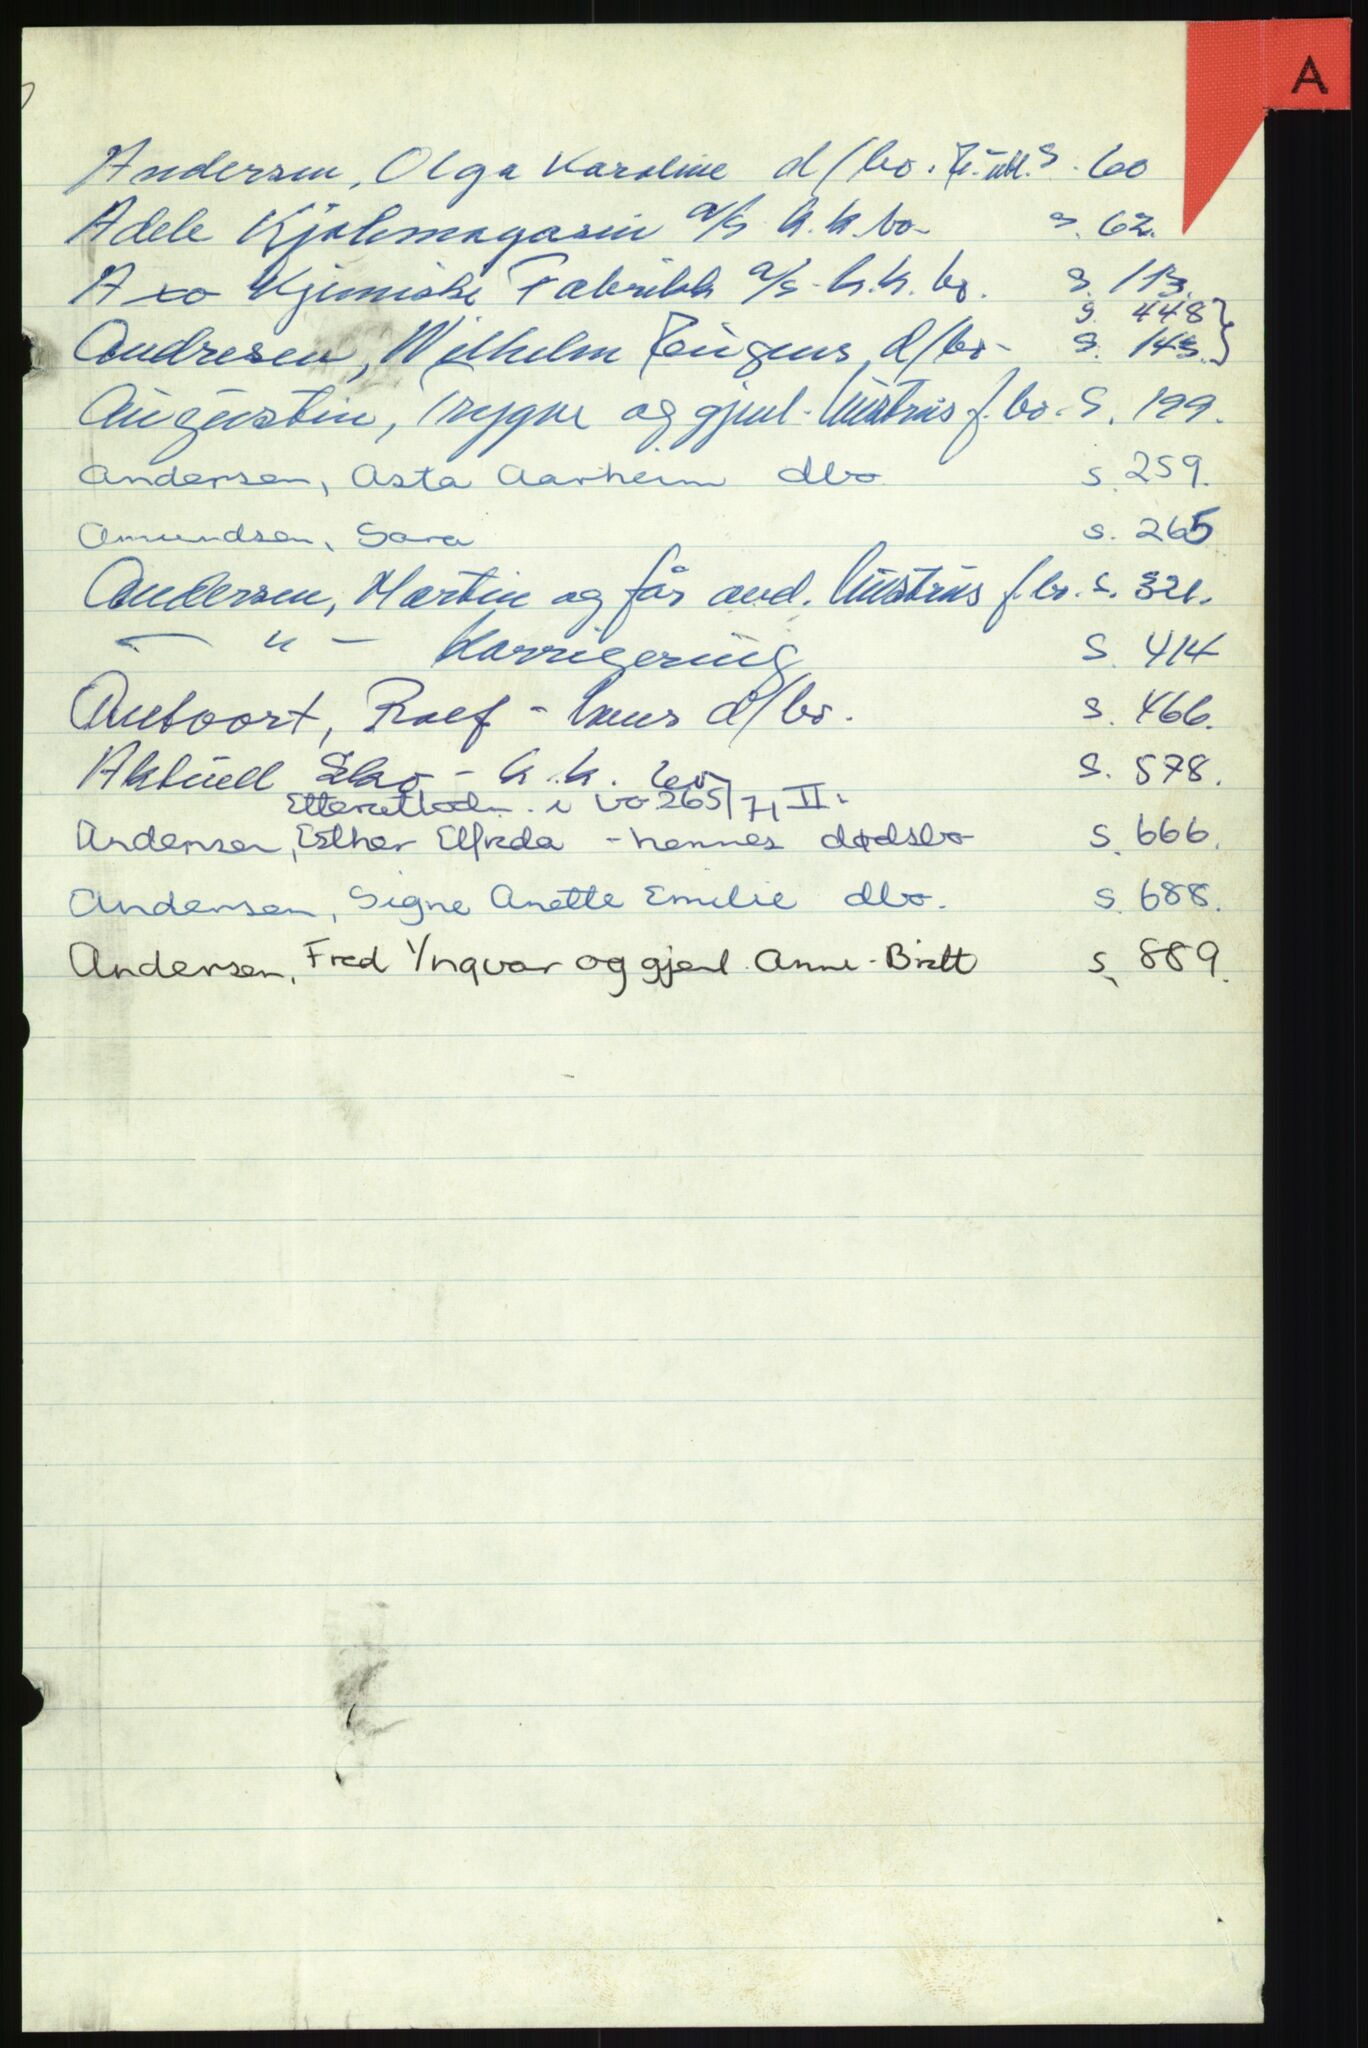 A
Andersen, Olga Karoline d/bo. s. 60
Adele Kjolemagasin a/s k.k.bo. s. 62.
Axo Kjemiske Fabrikk a/s - k.k. bo. s. 113.
s. 448 }
Andresen, Wilhelm Eugens d/bo. s. 143. }
Augustin, Trygve og gjenl. hustrus f.bo. S. 199.
Andersen, Asta Aarheim dbo s. 259.
Amundsen, Sara s. 265
Andersen, Martin og før avd. hustrus f.bo. s. 321.
— " — Korrigering S. 414
Antoort, Roef - hans d/bo. s. 466.
Aktuell Sko - k.k. bo s. 578.
i bo 265/71 II.
Andersen, Esther Elfreda - hennes dødsbo s. 666.
Andersen, Signe Anette Emilie dbo. s. 688.
Andersen, Fred Yngvar og gjenl. Anne-Britt s. 889.